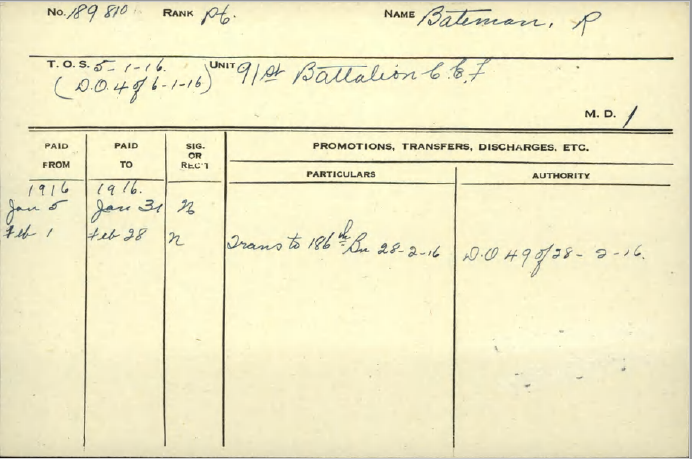 No. 189810 RANK Pt. NAME Bateman, R
T.O.S. 5-1-16. UNIT 91st Battalion C.E.F
(D.O. 4 of 6-1-16)
M. D. 1
PAID FROM PAID TO SIG. OR REC'T PROMOTIONS, TRANSFERS, DISCHARGES, ETC.
PARTICULARS AUTHORITY
1916 1916.
Jan 5 Jan 31 N
Feb 1 Feb 28 N Trans to 186th Bn 28-2-16 D.O 49 of 28-2-16.